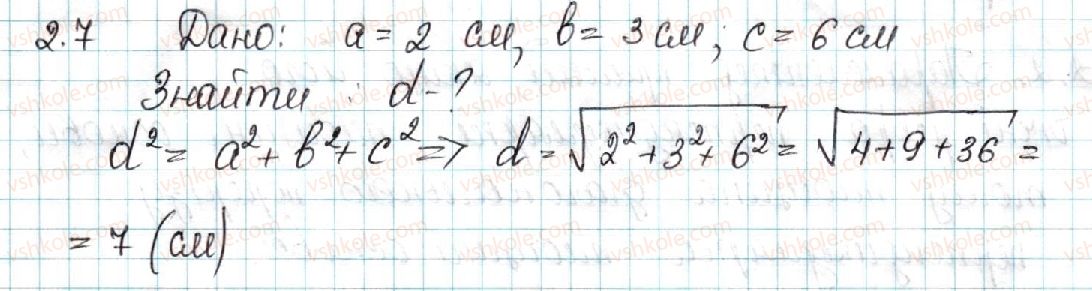 2.7 Дано: a = 2 см, b = 3 см; c = 6 см
Знайти : d - ?
d² = a² + b² + c² => d = √(2² + 3² + 6²) = √(4 + 9 + 36) =
= 7 (см)